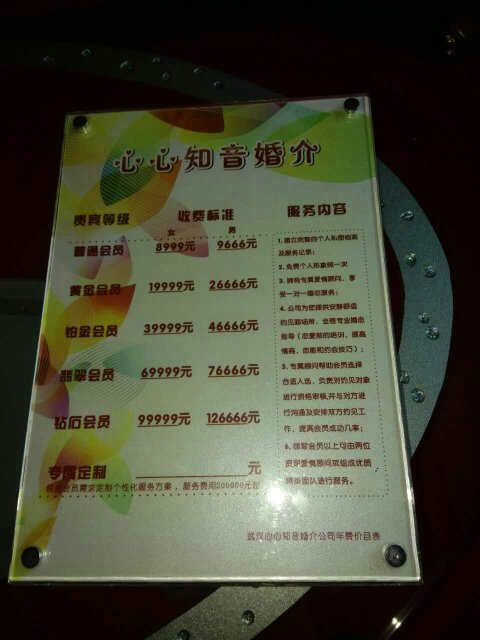 心心知音婚介
贵宾等级 收费标准 服务内容
女 男
普通会员 8999元 9666元
黄金会员 19999元 26666元
铂金会员 39999元 46666元
翡翠会员 69999元 76666元
钻石会员 99999元 126666元
专属定制 元
会员需求定制个性化服务方案，服务费用200000元起
1.建立完整的个人私密档案
及服务记录；
2.免费个人形象照一次
3.拥有专属爱情顾问，享
受一对一婚恋服务；
4.公司为您提供安静舒适
的见面场所，全程专业婚恋
指导（恋爱前的培训，提高
情商，恋期和约会技巧）；
5.专属顾问帮助会员选择
合适人选，负责对约见对象
进行资格审核，并与对方进
行沟通及安排双方约见工
作，提高会员成功几率；
6.翡翠会员以上可由两位
资深爱情顾问或组成优质
精英团队进行服务。
武汉心心知音婚介公司年费价目表